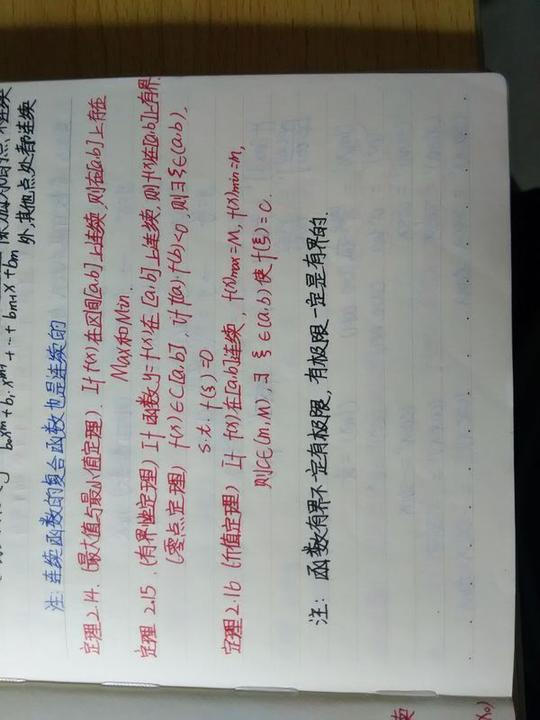 b₀xᵐ+b₁·xᵐ⁻¹+…+bₘ₋₁x+bₘ
外,其他点处都连续
注:连续函数的复合函数也是连续的
定理2.14.(最大值与最小值定理). If f(x)在区间[a,b]上连续,则在[a,b]上存在
Max和Min.
定理 2.15.(有界性定理) If 函数y=f(x)在[a,b]上连续,则f(x)在[a,b]上有界
(零点定理) f(x)∈C[a,b], if f(a)·f(b)<0,则∃ξ∈(a,b),
s.t. f(ξ)=0
定理2.16 (介值定理) If f(x)在[a,b]连续, f(x)max=M, f(x)min=m,
则C∈(m,M),∃ ξ∈(a,b)使f(ξ)=C.
注: 函数有界不一定有极限,有极限一定是有界的.